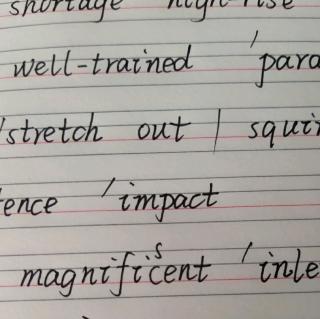 shortage high-rise
well-trained 'para
/stretch out | squir
ence 'impact
magnificent 'inle